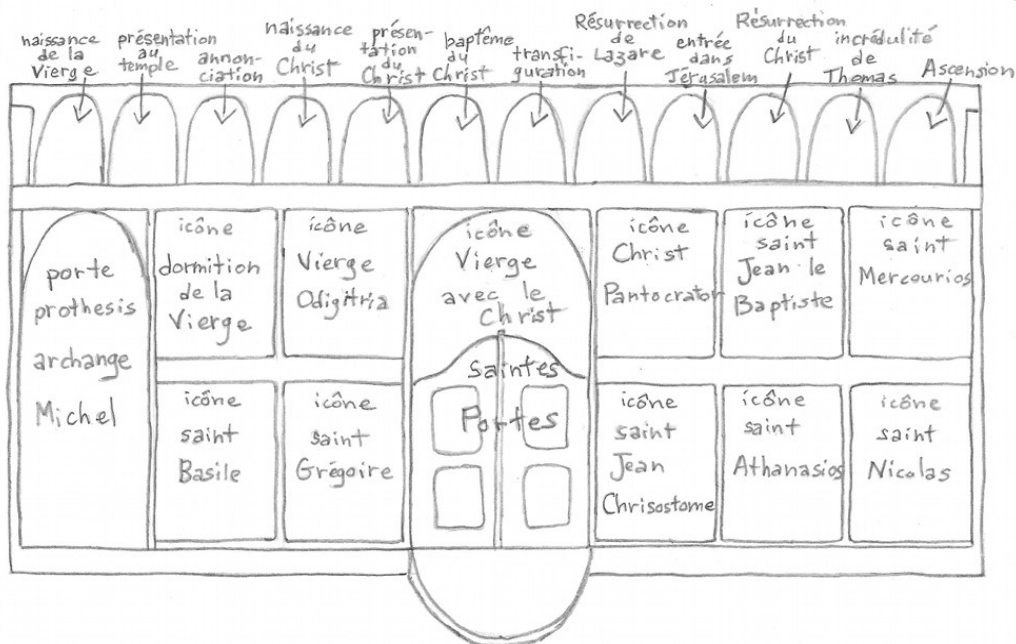 naissance
de la
Vierge
présentation
au
temple
annon-
ciation
naissance
du
Christ
présen-
tation
du
Christ
baptême
du
Christ
transfi-
guration
Résurrection
de
Lazare
entrée
dans
Jérusalem
Résurrection
du
Christ
incrédulité
de
Thomas
Ascension
porte
prothesis
archange
Michel
icône
dormition
de la
Vierge
icône
Vierge
Odigitria
icône
Vierge
avec le
Christ
Saintes
Portes
icône
Christ
Pantocrator
icône
saint
Jean le
Baptiste
icône
saint
Mercourios
icône
saint
Basile
icône
saint
Grégoire
icône
saint
Jean
Chrisostome
icône
saint
Athanasios
icône
saint
Nicolas